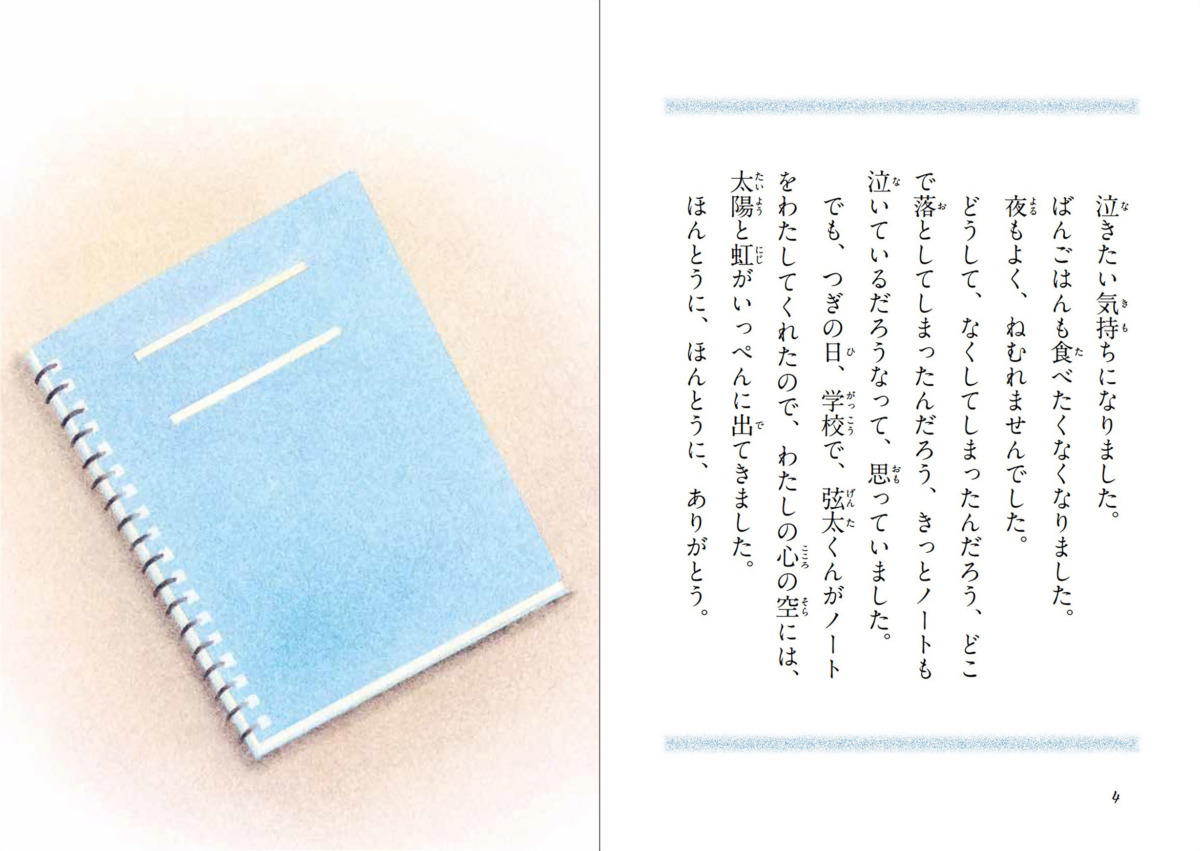 泣きたい気持ちになりました。
ばんごはんも食べたくなくなりました。
夜もよく、ねむれませんでした。
どうして、なくしてしまったんだろう、どこ
で落としてしまったんだろう、きっとノートも
泣いているだろうなって、思っていました。
でも、つぎの日、学校で、弦太くんがノート
をわたしてくれたので、わたしの心の空には、
太陽と虹がいっぺんに出てきました。
ほんとうに、ほんとうに、ありがとう。
4